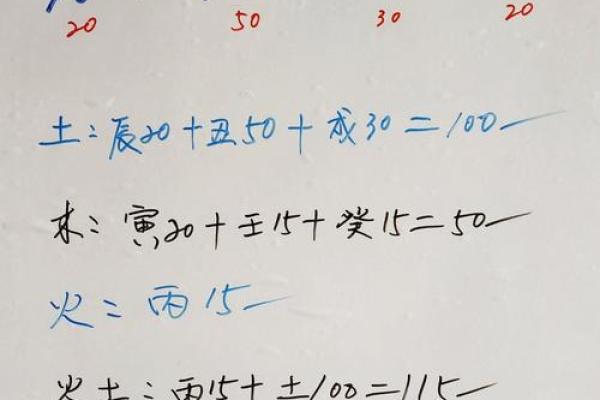 20 50 30 20
土：辰20+丑50+戌30=100
木：寅20+壬15+癸15=50
火：丙15
火土：丙15+土100=115